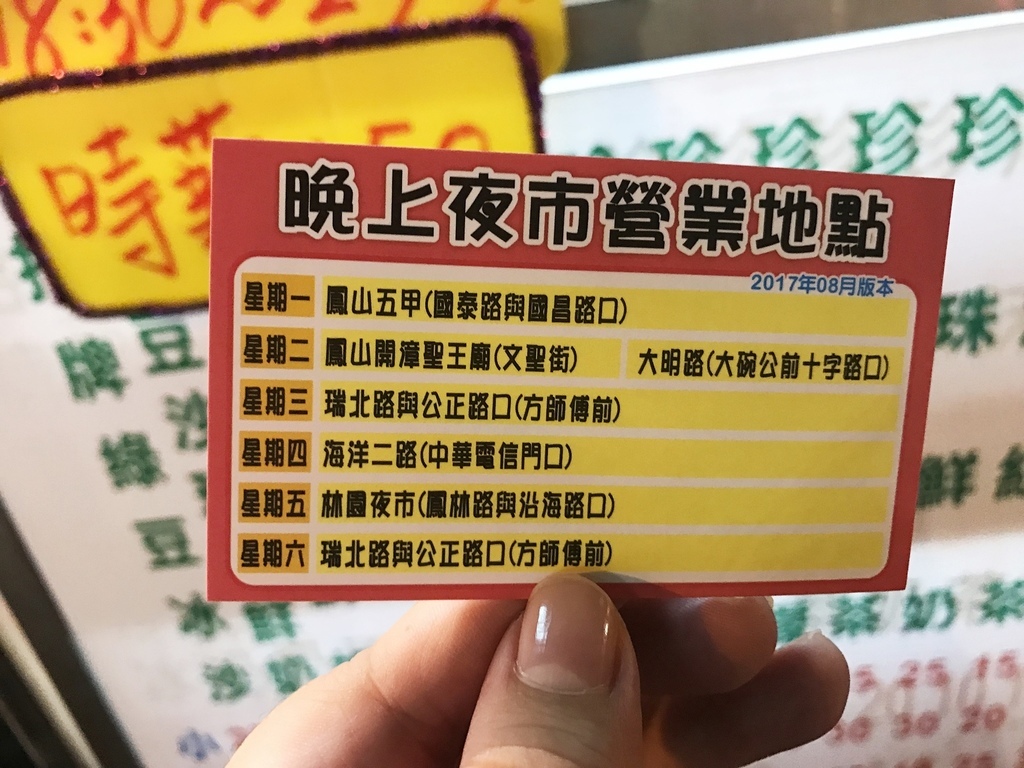 18:30
時華
珍珍珍珍
晚上夜市營業地點
2017年08月版本
星期一 鳳山五甲(國泰路與國昌路口)
星期二 鳳山開漳聖王廟(文聖街) 大明路(大碗公前十字路口)
星期三 瑞北路與公正路口(方師傅前)
星期四 海洋二路(中華電信門口)
星期五 林園夜市(鳳林路與沿海路口)
星期六 瑞北路與公正路口(方師傅前)
牌豆
珠
綠沙
鮮
豆
冰
茶奶茶
25 15
小
30 20